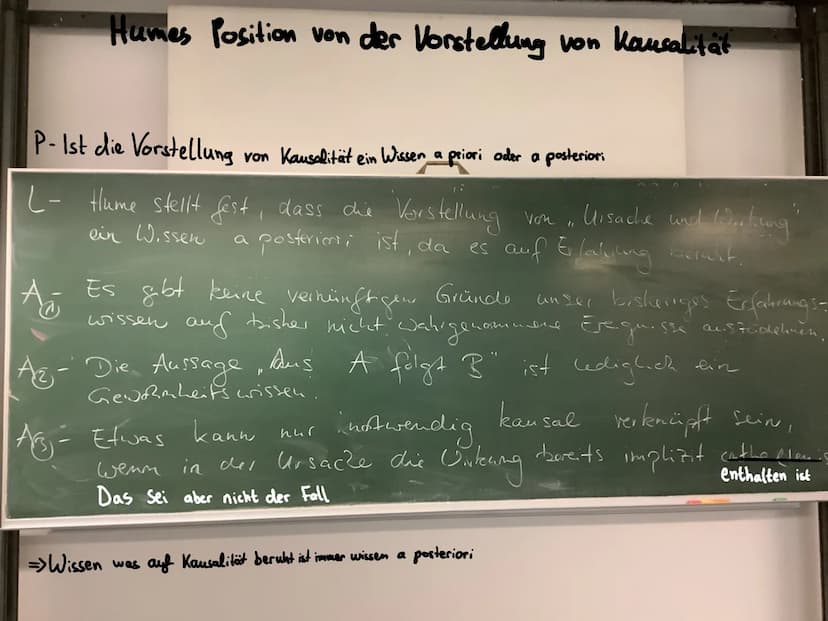 Humes Position von der Vorstellung von Kausalität
P - Ist die Vorstellung von Kausalität ein Wissen a priori oder a posteriori
L - Hume stellt fest, dass die Vorstellung von „Ursache und Wirkung"
ein Wissen a posteriori ist, da es auf Erfahrung beruht.
A(1) - Es gibt keine vernünftigen Gründe unser bisheriges Erfahrungs-
wissen auf bisher nicht wahrgenommene Ereignisse auszudehnen.
A(2) - Die Aussage „Aus A folgt B" ist lediglich ein
Gewohnheitswissen.
A(3) - Etwas kann nur notwendig kausal verknüpft sein,
wenn in der Ursache die Wirkung bereits implizit
enthalten ist
Das sei aber nicht der Fall
=> Wissen was auf Kausalität beruht ist immer wissen a posteriori